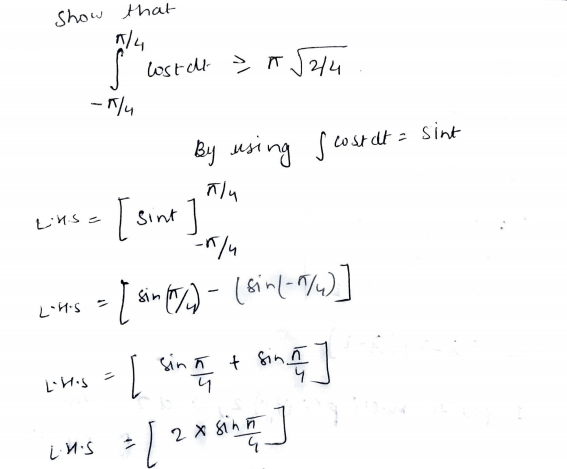 Show that
∫_{-π/4}^{π/4} cost dt ≥ π √2/4
By using ∫ cost dt = sint
L.H.S = [ sint ]_{-π/4}^{π/4}
L.H.S = [ sin(π/4) - (sin(-π/4) ]
L.H.S = [ sin π/4 + sin π/4 ]
L.H.S = [ 2 × sin π/4 ]